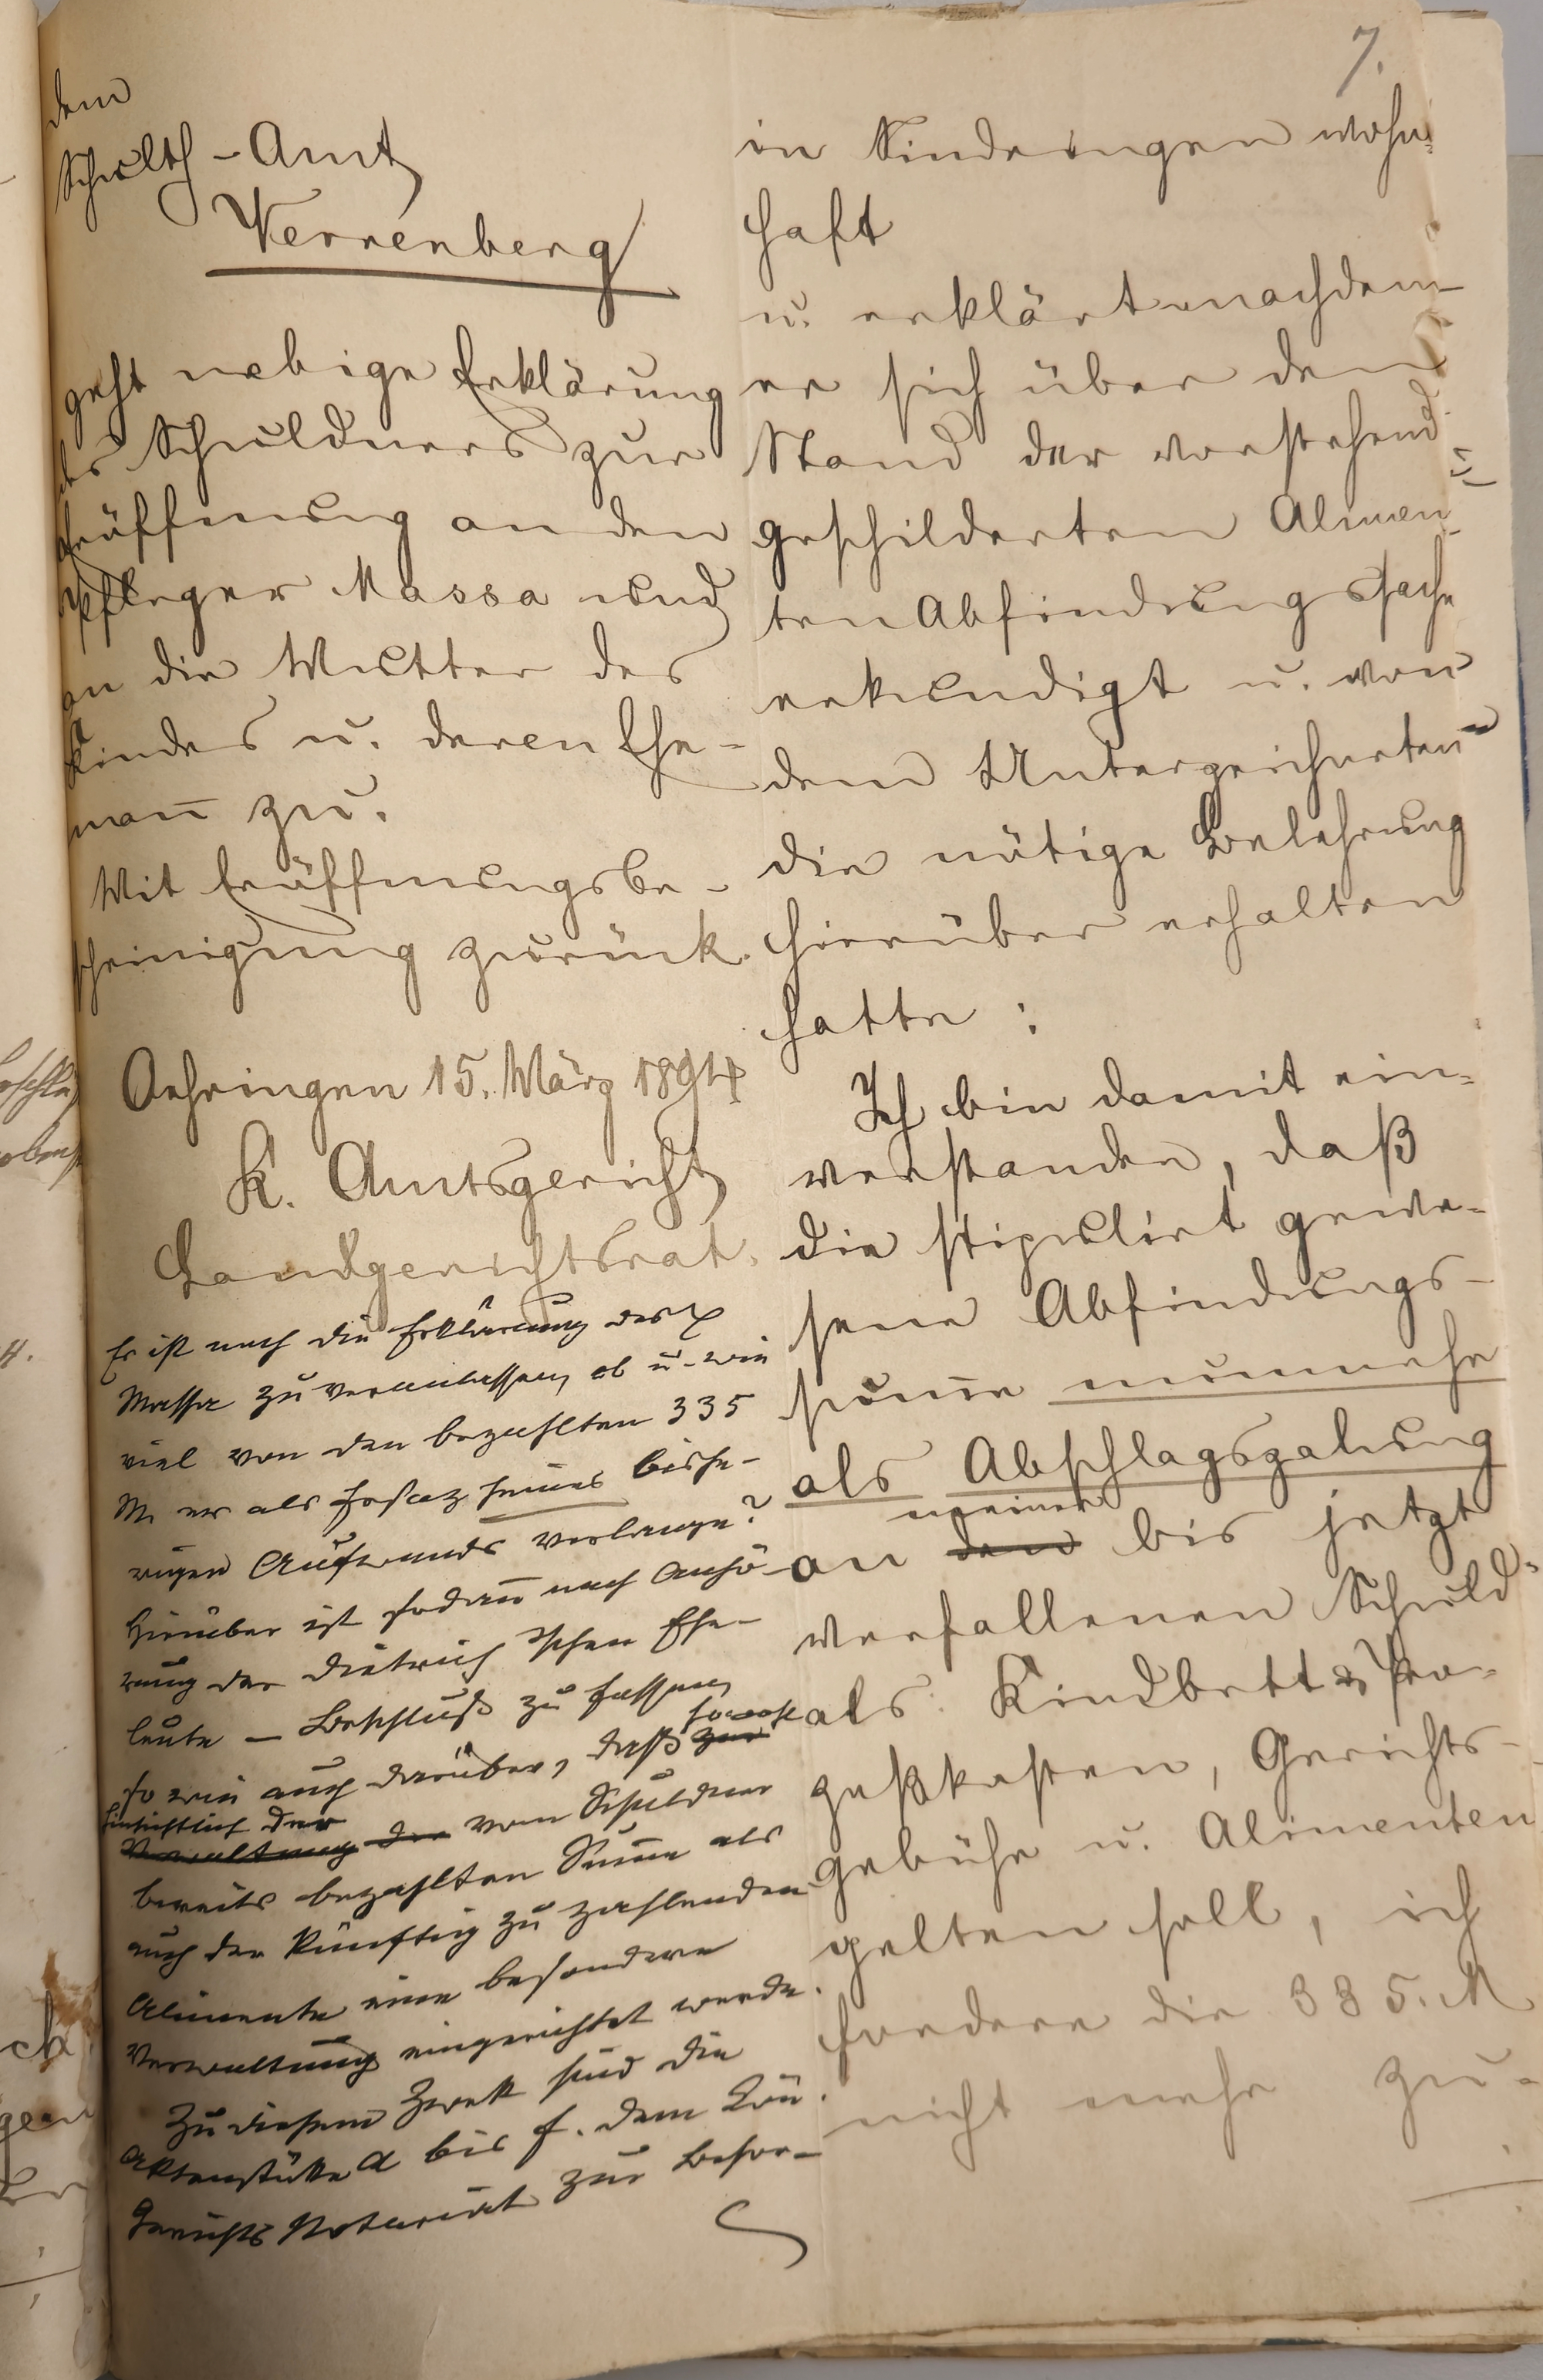 7.
dem
Schulth-Amt
Verrenberg
geht nebige Erklärung
des Schuldners zur
Eröffnung an den
Pfleger Massa und
an die Mutter des
Kindes u. deren Ehe-
man̄ zu.
Mit Eröffnungsbe-
scheinigung zurück.
Oehringen 15. März 1894
K. Amtsgericht
Landgerichtsrat.
Es ist noch die Erklärung des
Massa zu veranlassen, ob u. wie
viel von den bezahlten 335
M. er als Ersaz seines bishe-
rigen Aufwands verlange?
Hierüber ist sodan̄ nach Anhö-
rung der Dietrich'schen Ehe-
leute – Beschluß zu fassen,
so wie auch darüber, daß sowohl
hinsichtlich der vom Schuldner
bereits bezahlten Sum̄e als
auch der künftig zu zahlenden
Alimente eine besondere
Verwaltung eingerichtet werde.
Zu diesem Zwek sind die
Aktenstüke a bis f. dem
Gerichts Notariat zur Besor-
in Sindringen wohn-
haft
u. erklärt nachdem
er sich über den
Stand der vorstehend
geschilderten Alimen-
ten Abfindungssache
erkundigt u. von
dem Unterzeichneten
die nötige Belehrung
hierüber erhalten
hatte:
Ich bin damit ein-
verstanden, daß
die stipulirt gewe-
sene Abfindungs-
sum̄e nunmehr
als Abschlagszahlung
an meiner bis jetzt
verfallenen Schuld
als Kindbett & Pro-
zeßkosten, Gerichts-
gebühr u. Alimenten
gelten soll, ich
fordere die 335. M
nicht mehr zu-